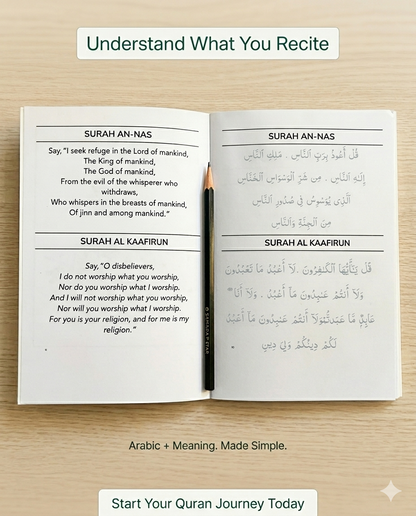 Understand What You Recite
SURAH AN-NAS
Say, "I seek refuge in the Lord of mankind,
The King of mankind,
The God of mankind,
From the evil of the whisperer who
withdraws,
Who whispers in the breasts of mankind,
Of jinn and among mankind."
SURAH AL KAAFIRUN
Say, "O disbelievers,
I do not worship what you worship,
Nor do you worship what I worship.
And I will not worship what you worship,
Nor will you worship what I worship.
For you is your religion, and for me is my
religion."
SURAH AN-NAS
قُل أَعُوذُ بِرَبِّ ٱلنَّاسِ . مَلِكِ ٱلنَّاسِ
إِلَٰهِ ٱلنَّاسِ . مِن شَرِّ ٱلْوَسْوَاسِ ٱلْخَنَّاسِ
ٱلَّذِى يُوَسْوِسُ فِى صُدُورِ ٱلنَّاسِ
مِنَ ٱلْجِنَّةِ وَٱلنَّاسِ
SURAH AL KAAFIRUN
قُلْ يَٰٓأَيُّهَا ٱلْكَٰفِرُونَ . لَآ أَعْبُدُ مَا تَعْبُدُونَ
وَلَآ أَنتُمْ عَٰبِدُونَ مَآ أَعْبُدُ . وَلَآ أَنَا
عَابِدٌ مَّا وَلَآ أَنتُمْ عَٰبِدُونَ مَآ أَعْبُدُ
لَكُمْ دِينُكُمْ وَلِىَ دِينِ
Arabic + Meaning. Made Simple.
Start Your Quran Journey Today